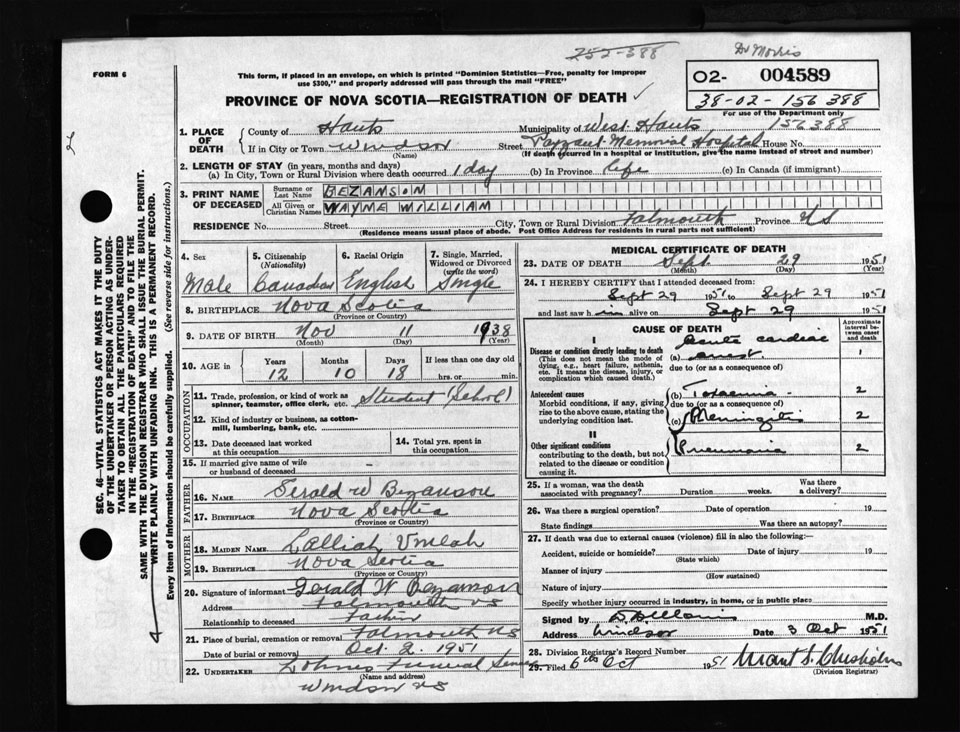 252-388
Dr Morris
FORM 6
This form, if placed in an envelope, on which is printed "Dominion Statistics—Free, penalty for improper use $300," and properly addressed will pass through the mail "FREE"
02- 004589
38-02-156 388
For use of the Department only
156388
PROVINCE OF NOVA SCOTIA—REGISTRATION OF DEATH ✓
1. PLACE OF DEATH
County of Hants
Municipality of West Hants
If in City or Town Windsor
(Name)
Street Payzant Memorial Hospital House No.
(If death occurred in a hospital or institution, give the name instead of street and number)
2. LENGTH OF STAY (in years, months and days)
(a) In City, Town or Rural Division where death occurred 1 day (b) In Province life (c) In Canada (if immigrant)
3. PRINT NAME OF DECEASED
Surname or Last Name BEZANSON
All Given or Christian Names WAYNE WILLIAM
RESIDENCE No. Street City, Town or Rural Division Falmouth Province NS
(Residence means usual place of abode. Post Office Address for residents in rural parts not sufficient)
4. Sex Male
5. Citizenship (Nationality) Canadian
6. Racial Origin English
7. Single, Married, Widowed or Divorced (write the word) Single
8. BIRTHPLACE Nova Scotia
(Province or Country)
9. DATE OF BIRTH Nov 11 1938
(Month) (Day) (Year)
10. AGE in Years 12 Months 10 Days 18 If less than one day old hrs. or min.
OCCUPATION
11. Trade, profession, or kind of work as spinner, teamster, office clerk, etc. Student (School)
12. Kind of industry or business, as cotton-mill, lumbering, bank, etc.
13. Date deceased last worked at this occupation
14. Total yrs. spent in this occupation
15. If married give name of wife or husband of deceased
FATHER
16. NAME Gerald W Bezanson
17. BIRTHPLACE Nova Scotia
(Province or Country)
MOTHER
18. MAIDEN NAME
19. BIRTHPLACE Nova Scotia
(Province or Country)
20. Signature of informant Gerald W Bezanson
Address Falmouth NS
Relationship to deceased Father
21. Place of burial, cremation or removal Falmouth NS
Date of burial or removal Oct. 2. 1951
22. UNDERTAKER Lohnes Funeral Service
Windsor NS
MEDICAL CERTIFICATE OF DEATH
23. DATE OF DEATH Sept 29 1951
(Month) (Day) (Year)
24. I HEREBY CERTIFY that I attended deceased from:
Sept 29 1951 to Sept 29 1951
and last saw him alive on Sept 29 1951
CAUSE OF DEATH
Approximate interval between onset and death
I
Disease or condition directly leading to death
(This does not mean the mode of dying, e.g., heart failure, asthenia, etc. It means the disease, injury, or complication which caused death.)
(a) Acute cardiac arrest 1
due to (or as a consequence of)
Antecedent causes
Morbid conditions, if any, giving rise to the above cause, stating the underlying condition last.
(b) Toxaemia 2
due to (or as a consequence of)
(c) Meningitis 2
II
Other significant conditions contributing to the death, but not related to the disease or condition causing it.
Pneumonia 2
25. If a woman, was the death associated with pregnancy? Duration weeks. Was there a delivery?
26. Was there a surgical operation? Date of operation 19
State findings Was there an autopsy?
27. If death was due to external causes (violence) fill in also the following:—
Accident, suicide or homicide? Date of injury 19
(State which)
Manner of injury
(How sustained)
Nature of injury
Specify whether injury occurred in industry, in home, or in public place
Signed by M.D.
Address Windsor Date 3 Oct 1951
28. Division Registrar's Record Number
29. Filed 6th Oct 1951 Chisholm
(Division Registrar)
SEC. 46—VITAL STATISTICS ACT MAKES IT THE DUTY OF THE UNDERTAKER OR PERSON ACTING AS UNDERTAKER TO OBTAIN ALL THE PARTICULARS REQUIRED IN THE "REGISTRATION OF DEATH" AND TO FILE THE SAME WITH THE DIVISION REGISTRAR WHO SHALL ISSUE THE BURIAL PERMIT.
WRITE PLAINLY WITH UNFADING INK. THIS IS A PERMANENT RECORD.
Every item of information should be carefully supplied. (See reverse side for instructions.)